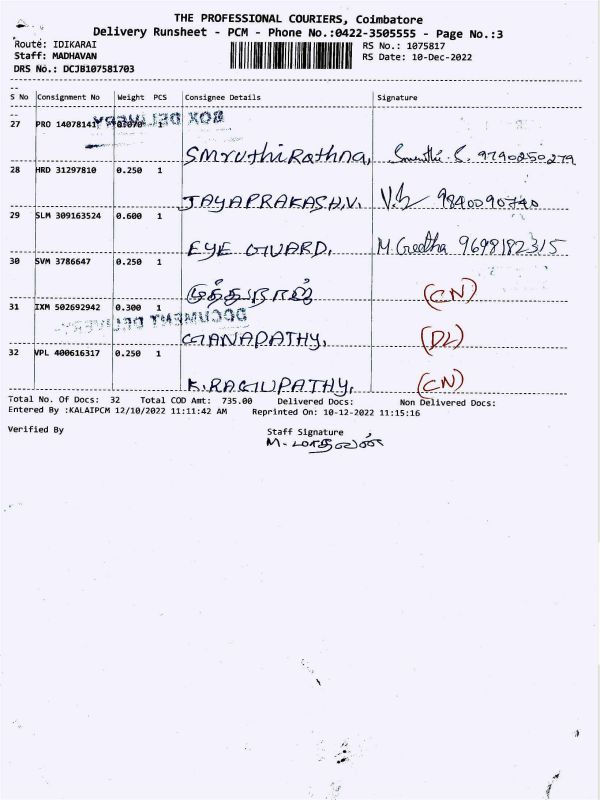 THE PROFESSIONAL COURIERS, Coimbatore
Delivery Runsheet - PCM - Phone No.:0422-3505555 - Page No.:3
Route: IDIKARAI
RS No.: 1075817
Staff: MADHAVAN
RS Date: 10-Dec-2022
DRS No.: DCJB107581703
S No Consignment No Weight PCS Consignee Details Signature
27 PRO 14078141 1
BOX DELIVERY
SmruthiRathna, 9790250279
28 HRD 31297810 0.250 1
JAYAPRAKASH.V. 9840090740
29 SLM 309163524 0.600 1
EYE GUARD, M. Geetha 9698182315
30 SVM 3786647 0.250 1
முத்துராஜ் (CN)
31 IXM 502692942 0.300 1
DOCUMENT DELIVERY
GANAPATHY, (DL)
32 VPL 400616317 0.250 1
K.RAGUPATHY, (CN)
Total No. Of Docs: 32 Total COD Amt: 735.00 Delivered Docs: Non Delivered Docs:
Entered By :KALAIPCM 12/10/2022 11:11:42 AM Reprinted On: 10-12-2022 11:15:16
Verified By Staff Signature
M. மாதவன்